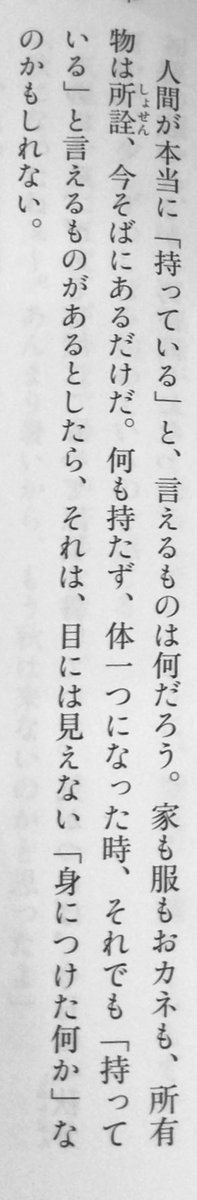 人間が本当に「持っている」と、言えるものは何だろう。家も服もおカネも、所有
物は所詮、今そばにあるだけだ。何も持たず、体一つになった時、それでも「持って
いる」と言えるものがあるとしたら、それは、目には見えない「身につけた何か」な
のかもしれない。